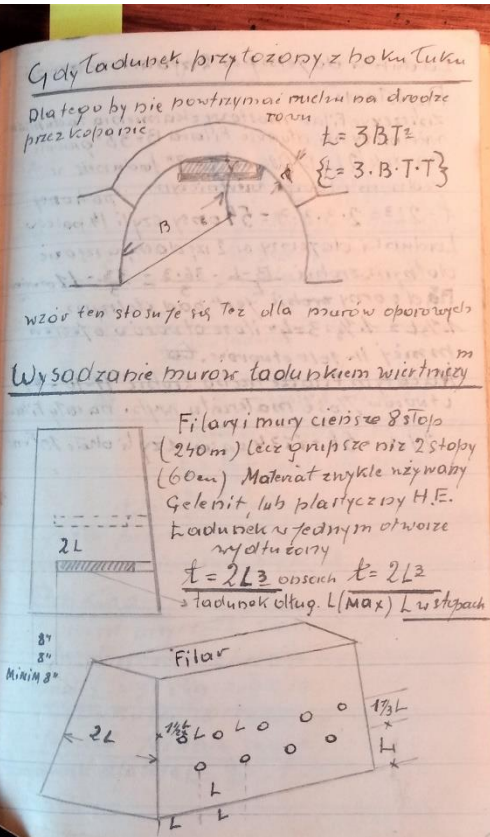 Gdy ładunek przyłożony z boku łuku
Dlatego by nie powtrzymać ruchu na drodze
przez kopanie rowu
Ł = 3BT²
{Ł = 3·B·T·T}
B
wzór ten stosuje się Też dla murów oporowych
Wysadzanie murów ładunkiem wiertniczym
Filary i mury cieńsze 8 stop
(240m) lecz grupsze niż 2 stopy
(60cm) Materiał zwykle używany
Gelenit, lub plastyczny H.E.
Ładunek w jednym otworze
wydłużony
2L
Ł = 2L3 onsach Ł = 2L3
ładunek dług. L(Max) L w stopach
8"
8"
MiNiM 8"
Filar
2L
1½L
L
L
1⅓L
L
L
L
L